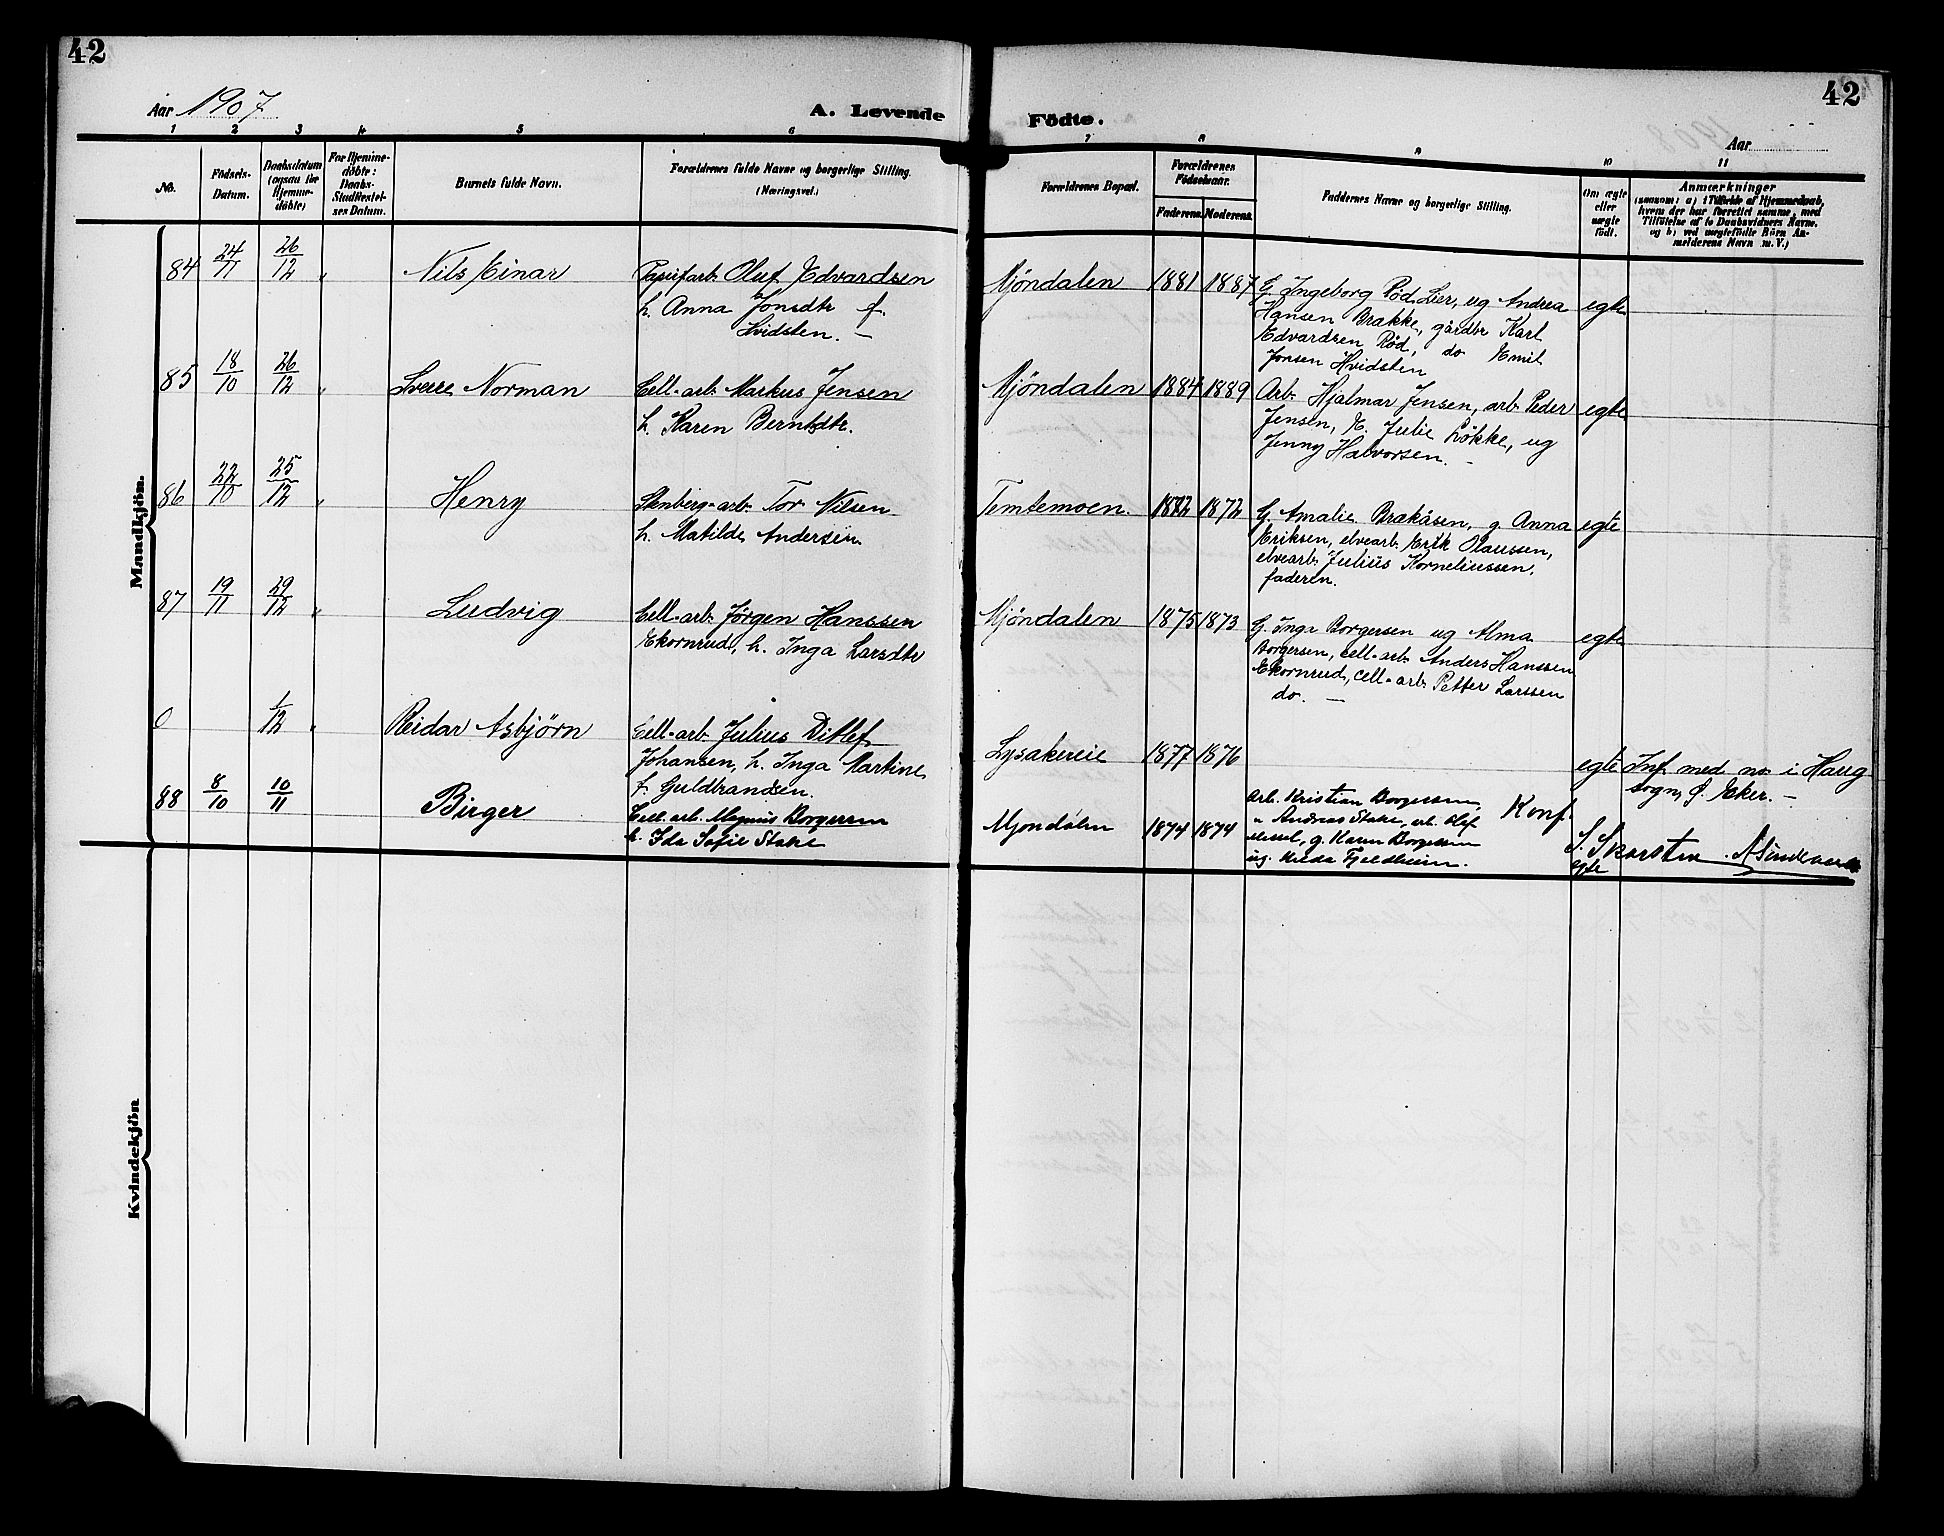 42
42
Aar 1907
A. Levende Fødte.
Aar
1 2 3 4 5 6 7 8 9 10 11
No.
Fødsels-Datum.
Daabsdatum (ogsaa for Hjemme-døbte)
For Hjemme-døbte: Daabs-Stadfestel-ses Datum.
Barnets fulde Navn.
Forældrenes fulde Navne og borgerlige Stilling. (Næringsvei.)
Forældrenes Bopæl.
Forældrenes Fødselsaar.
Faderens. Moderens.
Faddernes Navne og borgerlige Stilling.
Om ægte eller uægte født.
Anmærkninger
(saasom: a) i Tilfælde af Hjemmedaab, hvem der har forrettet samme, med Tilføielse af to Daabsvidners Navne, og b) ved uægtefødte Børn Anmelderens Navn m. V.)
Mandkjön.
84 24/11 26/12 " Nils Einar
Papirfarb. Oluf Edvardsen
h. Anna Jonsdtr f.
Hvidsten. —
Mjöndalen 1881 1887
G. Ingeborg Rød, Lier, ug Andrea
Hansen Brække, gårdbr Karl
Edvardsen Rød, do Emil
Jonsen Hvidsten
egte
85 18/10 26/12 " Sverre Norman
Cell-arb. Markus Jensen
h. Karen Berntsdtr.
Mjöndalen 1884 1889
Arb. Hjalmar Jensen, arb. Peder
Jensen, E. Julie Løkke, ug
Jenny Halvorsen. —
egte
86 22/10 25/12 " Henry
Stenberg-arb. Tor Nilsen
h. Matilde Andersen.
Temtemoen. 1872
G. Amalie Brakåsen, g. Anna
Eriksen, elvearb. Erik Olaussen,
elvearb. Julius Korneliussen.
faderen.
egte
87 19/11 29/12 " Ludvig
Cell-arb. Jørgen Hanssen
Ekornrud, h. Inga Larsdtr
Mjöndalen 1875 1873
G. Inga Borgersen ug Alma
Borgersen, cell-arb. Anders Hanssen
Ekornrud, cell-arb. Petter Larssen
do. —
egte
0 1/12 " Reidar Asbjørn
Cell-arb. Julius Ditlef
Johansen, h. Inga Martine
f. Guldbrandsen.
Lysakereie 1877 1876
egte Inf. med no. i Haug
sogn, Ø. Eker. —
88 8/10 10/11 Birger
Cell.arb. Magnus Borgersen
h. Ida Sofie Stake
Mjöndalen 1874 1874
Arb. Kristian Borgersen,
" Andreas Stake, arb. Olef
g. Karen Borgersen
ug. Hilda Fjeldheim.
egte
Konf.
S. Skarsten
Kvindekjön